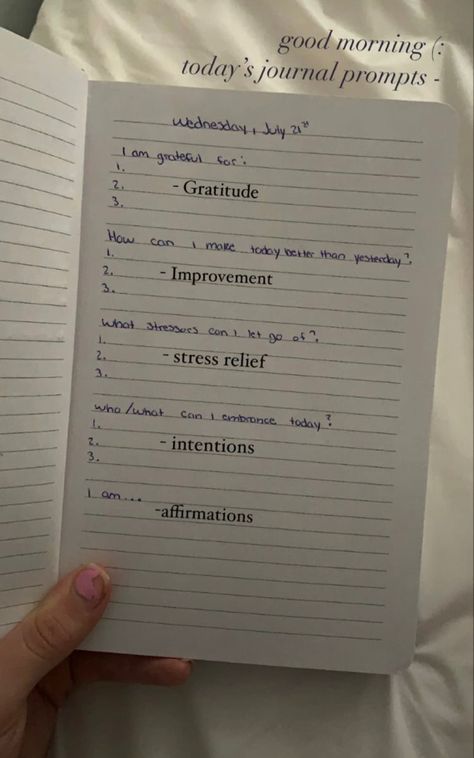 good morning (:
today's journal prompts -
Wednesday, July 21st
I am grateful for:
1.
2. - Gratitude
3.
How can I make today better than yesterday?
1.
2. - Improvement
3.
What stressors can I let go of?
1.
2. - stress relief
3.
who/what can I embrance today?
1.
2. - intentions
3.
I am...
-affirmations